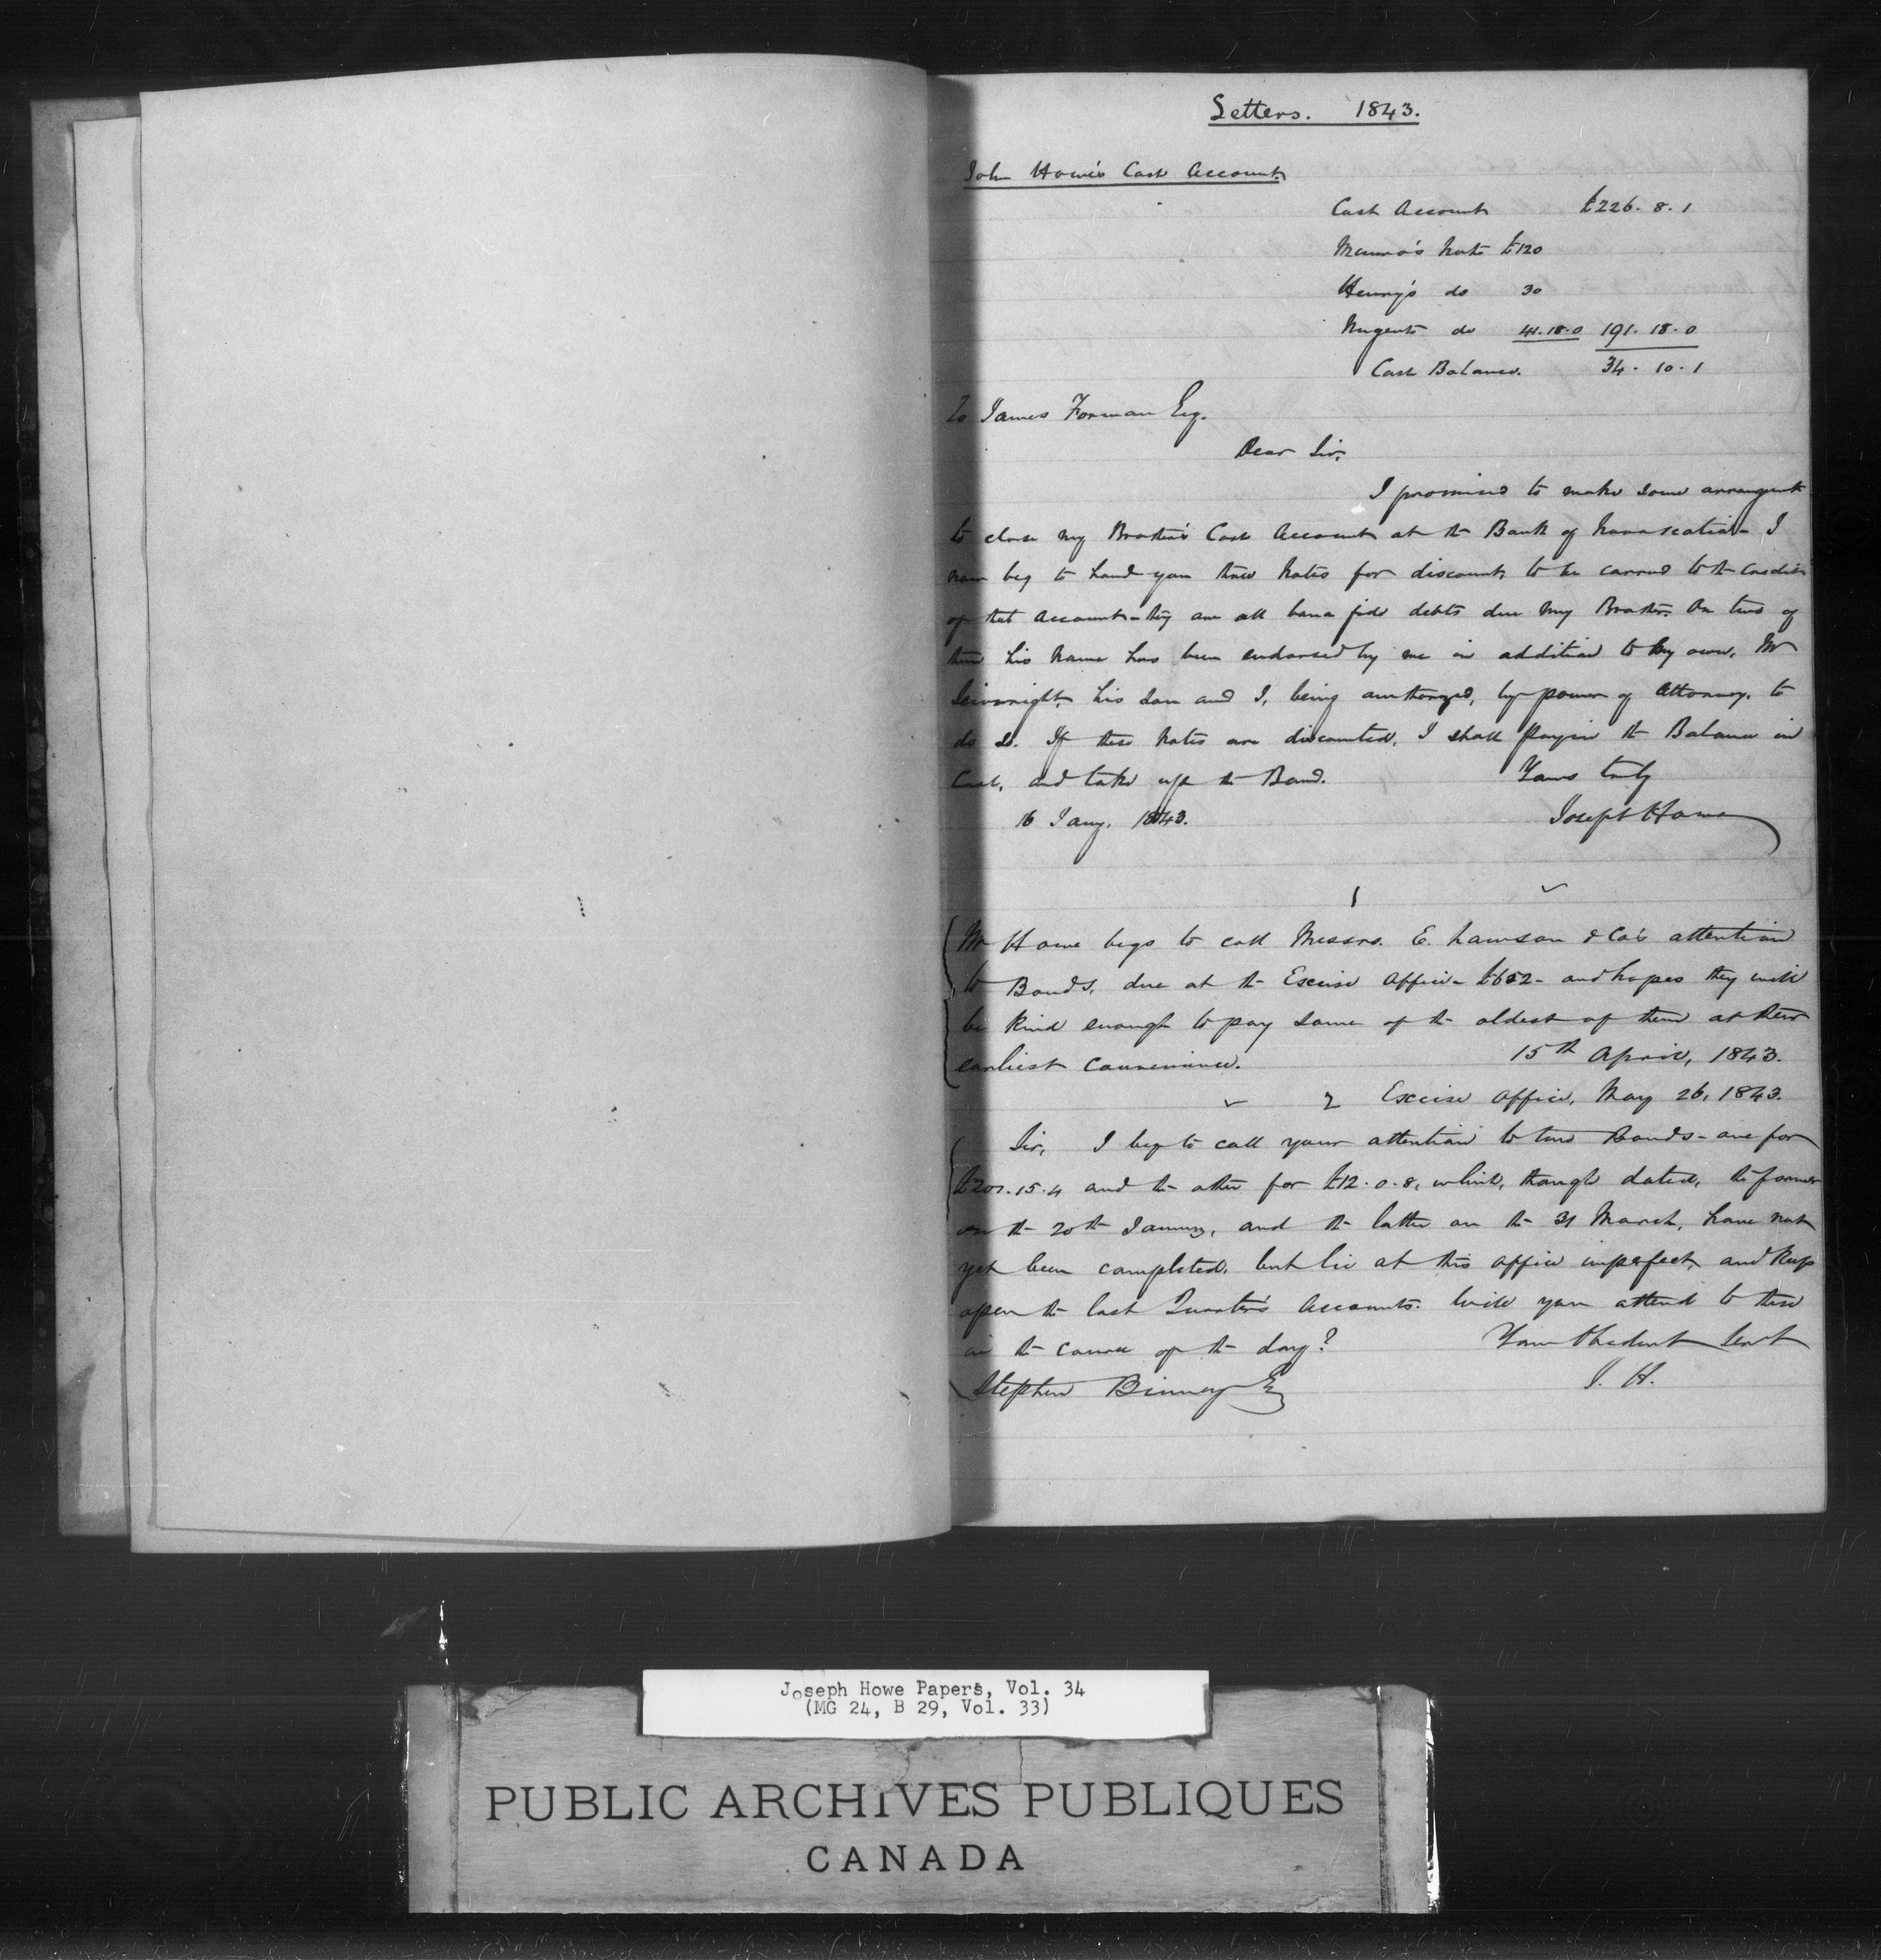 Letters. 1843.
John Howe's Cash Account.
Cash Account £226. 8. 1
Munro's Note £120
Henry's do 30
Nugents do 41.18.0 191. 18. 0
Cash Balance. 34. 10. 1
To James Forman Esq.
Dear Sir,
I promised to make some arrangent
to close my Brother's Cash Account at the Bank of Novascotia - I
now beg to hand you three Notes for discount, to be carried to the Credit
of that Account - they are all bona fide debts due my Brother. On two of
them his name has been endorsed by me in addition to my own, Mr
his Son and I, being authorized, by power of Attorney, to
do so. If these Notes are discounted, I shall pay in the Balance in
Cash, and take up the Bond. Yours truly
16 Jany. 1843. Joseph Howe
1
Mr Howe begs to call Messrs. E. Lawson & Co's attention
to Bonds, due at the Excise Office - £652 - and hopes they will
be kind enough to pay some of the oldest of them at their
earliest convenience. 15th April, 1843.
2 Excise Office, May 26, 1843.
Sir, I beg to call your attention to two Bonds - one for
£201.15.4 and the other for £12.0.8, which, though dated, the former
on the 20th January, and the latter on the 31 March, have not
yet been completed, but lie at this office imperfect, and keep
open the last Quarter's Accounts. Will you attend to these
in the course of the day? Your Obedient Servt
Stephen Binney Esq J. H.
Joseph Howe Papers, Vol. 34
(MG 24, B 29, Vol. 33)
PUBLIC ARCHIVES PUBLIQUES
CANADA